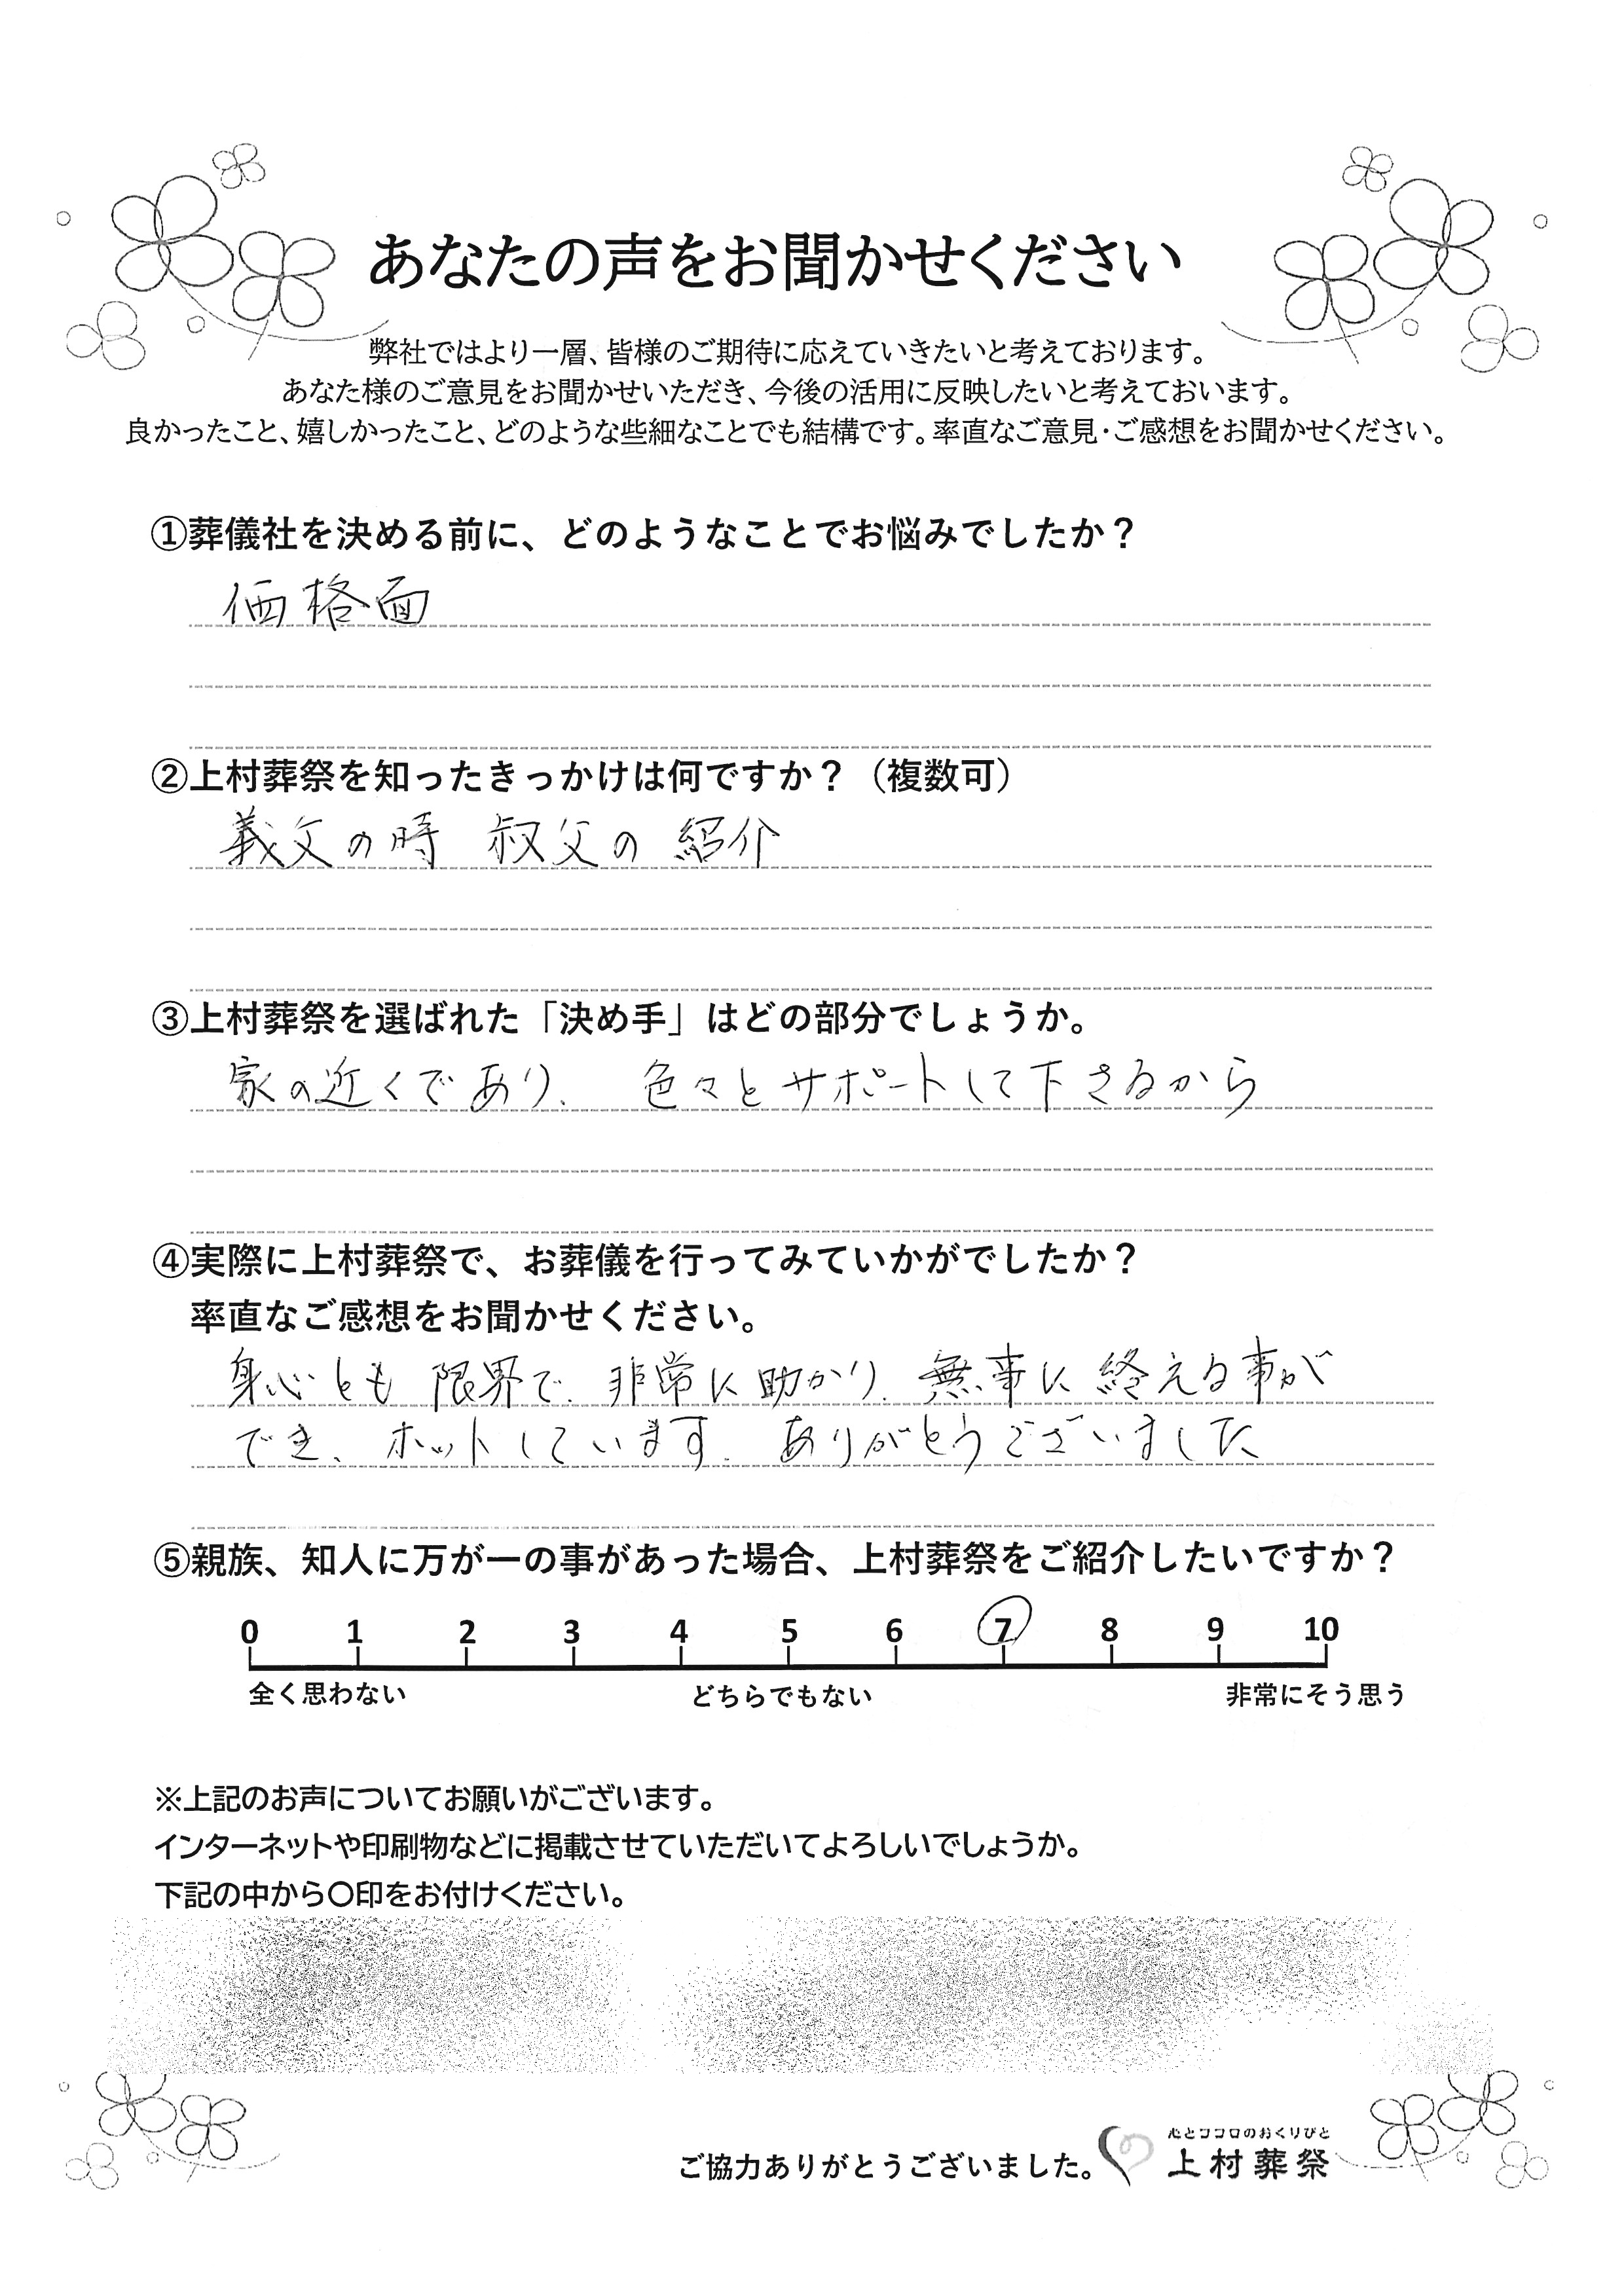 あなたの声をお聞かせください
弊社ではより一層、皆様のご期待に応えていきたいと考えております。
あなた様のご意見をお聞かせいただき、今後の活用に反映したいと考えておいます。
良かったこと、嬉しかったこと、どのような些細なことでも結構です。率直なご意見・ご感想をお聞かせください。
①葬儀社を決める前に、どのようなことでお悩みでしたか？
価格面
②上村葬祭を知ったきっかけは何ですか？（複数可）
義父の時 叔父の紹介
③上村葬祭を選ばれた「決め手」はどの部分でしょうか。
家の近くであり、色々とサポートして下さるから
④実際に上村葬祭で、お葬儀を行ってみていかがでしたか？
率直なご感想をお聞かせください。
身心とも限界で、非常に助かり、無事に終える事が
でき、ホットしています。ありがとうございました
⑤親族、知人に万が一の事があった場合、上村葬祭をご紹介したいですか？
0 1 2 3 4 5 6 7 8 9 10
全く思わない どちらでもない 非常にそう思う
※上記のお声についてお願いがございます。
インターネットや印刷物などに掲載させていただいてよろしいでしょうか。
下記の中から〇印をお付けください。
心とココロのおくりびと
ご協力ありがとうございました。 上村葬祭